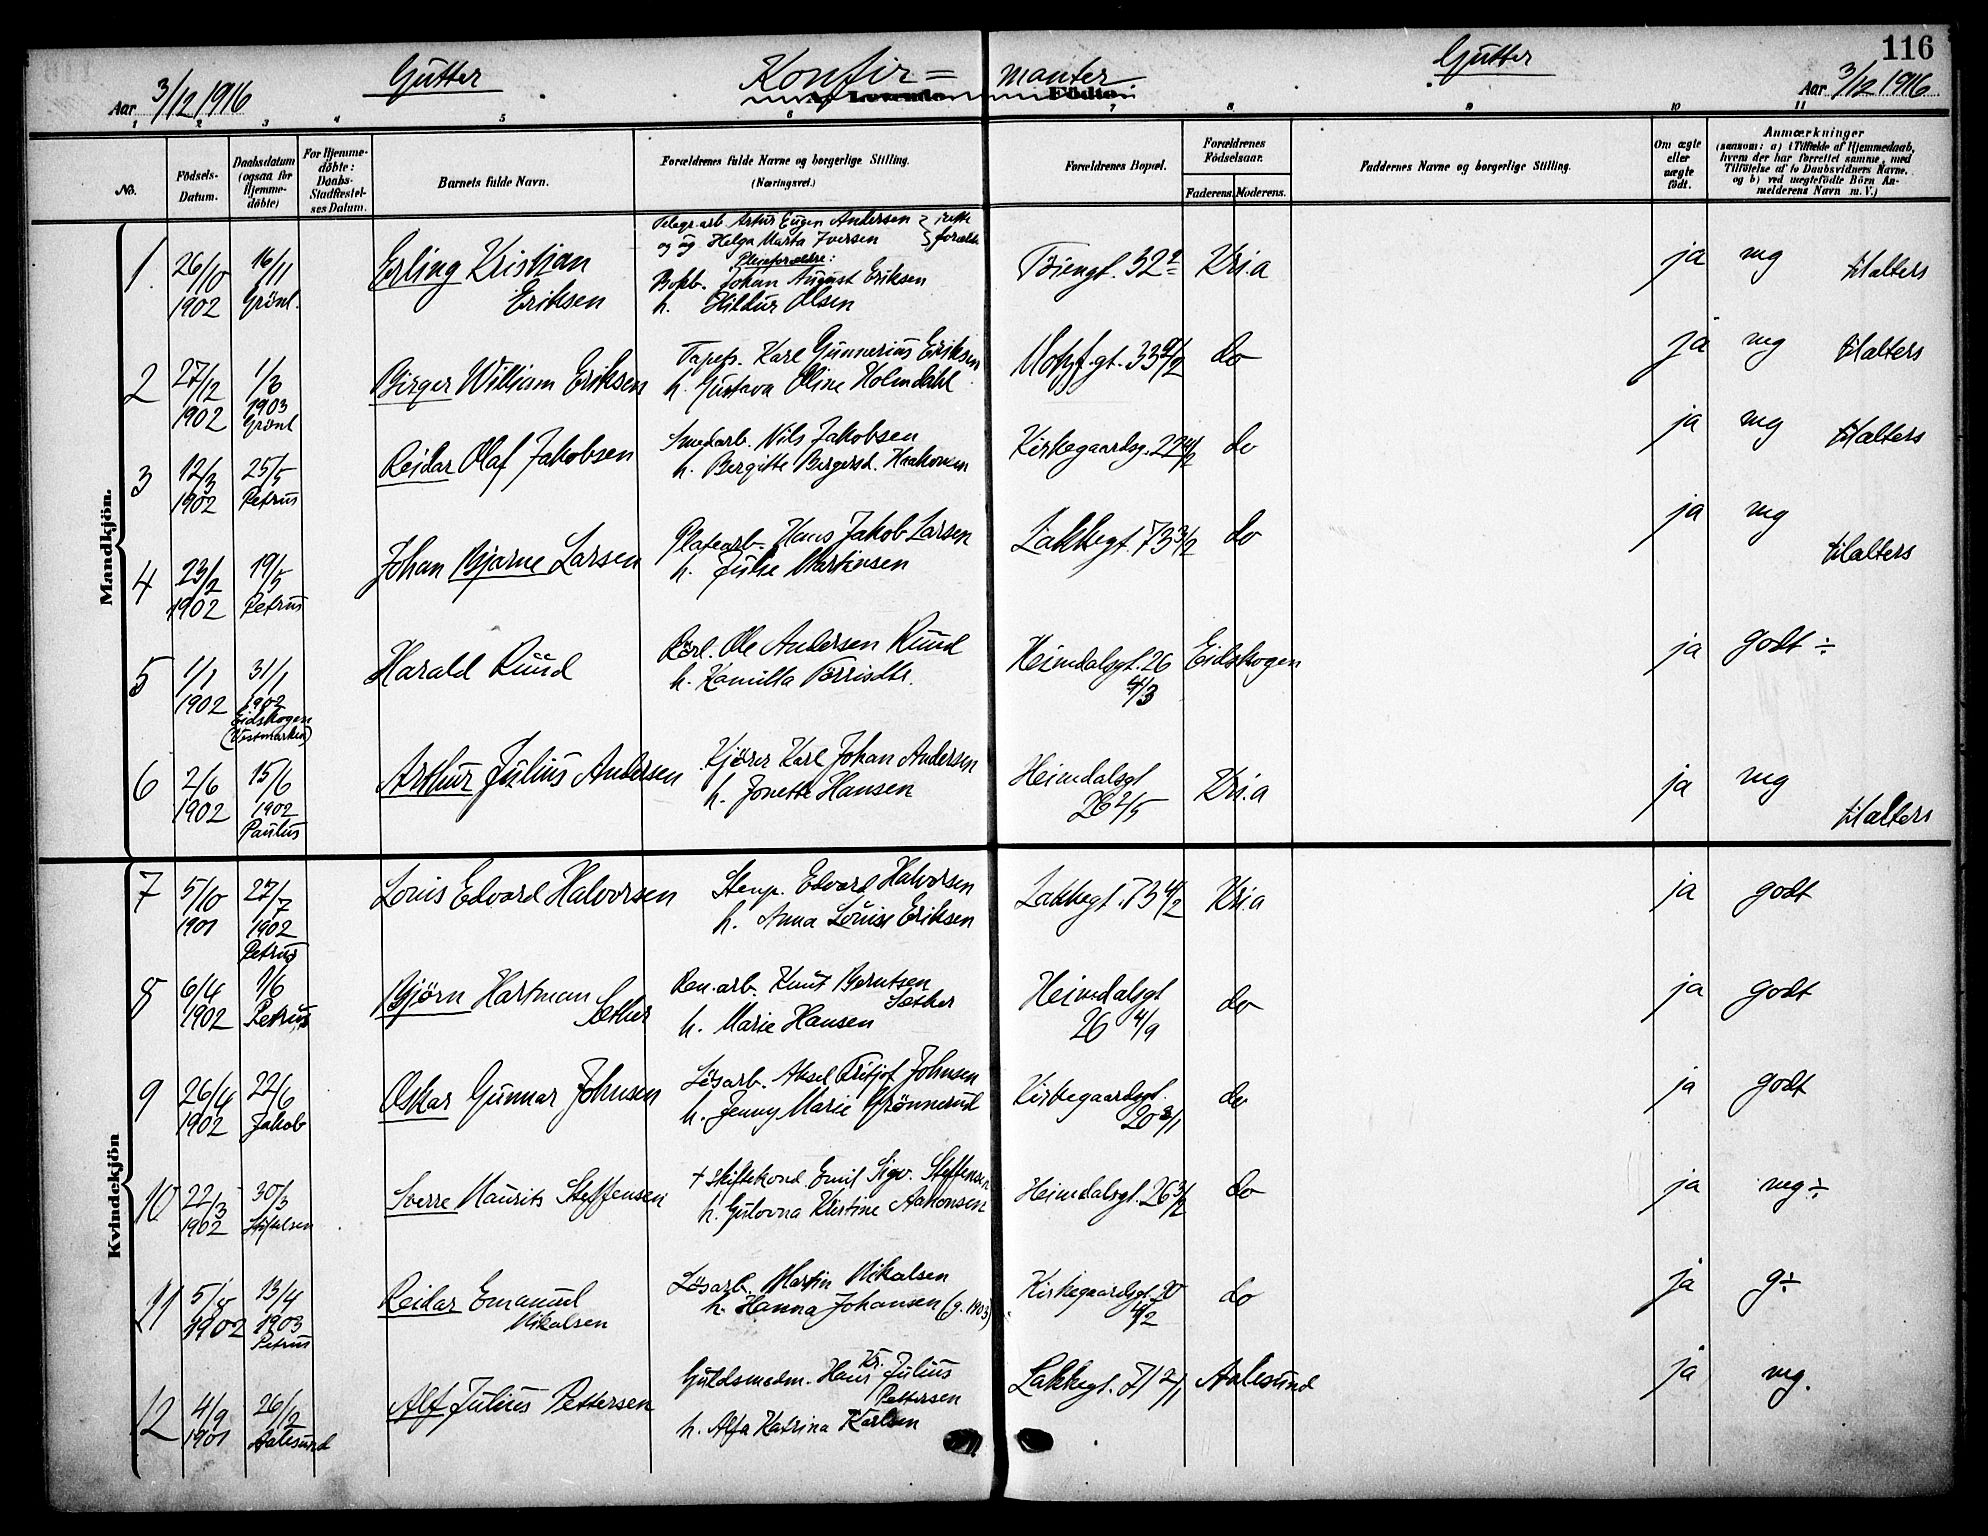 116
Gutter
Konfir=
manter
Gutter
Aar 3/12 1916
A. Levende
Födte.
Aar 3/12 1916
1 2 3 4 5 6 7 8 9 10 11
No.
Födsels-
Datum.
Daabsdatum
(ogsaa for
Hjemme-
döbte)
For Hjemme-
döbte:
Daabs-
Stadfæstel-
ses Datum.
Barnets fulde Navn.
Forældrenes fulde Navne og borgerlige Stilling.
(Næringsvei.)
Forældrenes Bopæl.
Forældrenes
Födselsaar.
Faderens. Moderens.
Faddernes Navne og borgerlige Stilling.
Om ægte
eller
uægte
födt.
Anmærkninger
(saasom: a) i Tilfælde af Hjemmedaab,
hvem der har forrettet samme, med
Tilföielse af to Daabsvidners Navne,
og b) ved uægtefödte Börn An-
melderens Navn m. V.)
Mandkjön.
1
26/10
1902
16/11
Grönl.
Erling Kristian
Eriksen
Telegr.arb. Artur Eugen Andersen
og ug Helga Marta Iversen
rette
foreldre
Pleieforældre:
Bokb. Johan August Eriksen
h. Hildur Olsen
Töiengt. 32
Kria
ja
mg
2
27/12
1902
1/3
1903
Grönl
Birger William Eriksen
Tapets. Karl Gunnerius Eriksen
h. Gustava Oline Holmdahl
do
ja
mg
3
12/3
1902
25/5
Petrus
Reidar Olaf Jakobsen
Smedarb. Nils Jakobsen
h. Bergitte Bergersd. Haakonsen
Kirkegaardsg. 22 4/2
do
ja
mg
4
23/2
1902
19/5
Petrus
Johan Bjarne Larsen
Platearb. Hans Jakob Larsen
h. Julie Martinsen
Lakkegt. 73 3/2
do
ja
mg
5
1/1
1902
31/1
1902
Eidskogen
(Vestmarken)
Harald Ruud
Ole Andersen Ruud
h. Kamilla
Heimdalsgt. 26
4/3
Eidskogen
ja
godt ÷
6
2/6
1902
15/6
1902
Paulus
Arthur Julius Andersen
Kjörer Karl Johan Andersen
h. Jonette Hansen
Heimdalsgt
26 2/5
Kria
ja
mg
Kvindekjön
7
5/10
1901
27/7
1902
Petrus
Louis Edvard Halvorsen
Stenp. Edvard Halvorsen
h. Anna Louise Eriksen
Lakkegt. 73 4/2
Kria
ja
godt
8
6/4
1902
1/6
Petrus
Bjørn Hartman
Sæther
Ren.arb. Knut Berntsen
Sæther
h. Marie Hansen
Heimdalsgt
26 4/9
do
ja
godt
9
26/4
1902
22/6
Jakob
Oskar Gunnar Johnsen
Lösarb. Aksel Fritjof Johnsen
h. Jenny Marie Grönnerud
Kirkegaardsgt.
20 3/1
do
ja
godt
10
22/3
1902
30/3
Stiftelsen
Sverre Maurits Steffensen
+ Skiftekond Emil Sigv. Steffensen
h. Gulovna Kristine Aakonsen
Heimdalsgt. 26 3/2
do
ja
mg÷
11
5/8
1902
13/4
1903
Petrus
Reidar Emanuel
Nikolsen
Lösarb. Martin Nikolsen
h. Hanna Johansen (g. 1903)
Kirkegaardsgt. 20
4/2
do
ja
g÷
12
4/9
1901
26/12
Aalesund
Alf Julius Pettersen
Guldsmedm. Hans Kr. Julius
Pettersen
h. Alfa Katrina Karlsen
Lakkegt. 71 2/1
Aalesund
ja
mg.